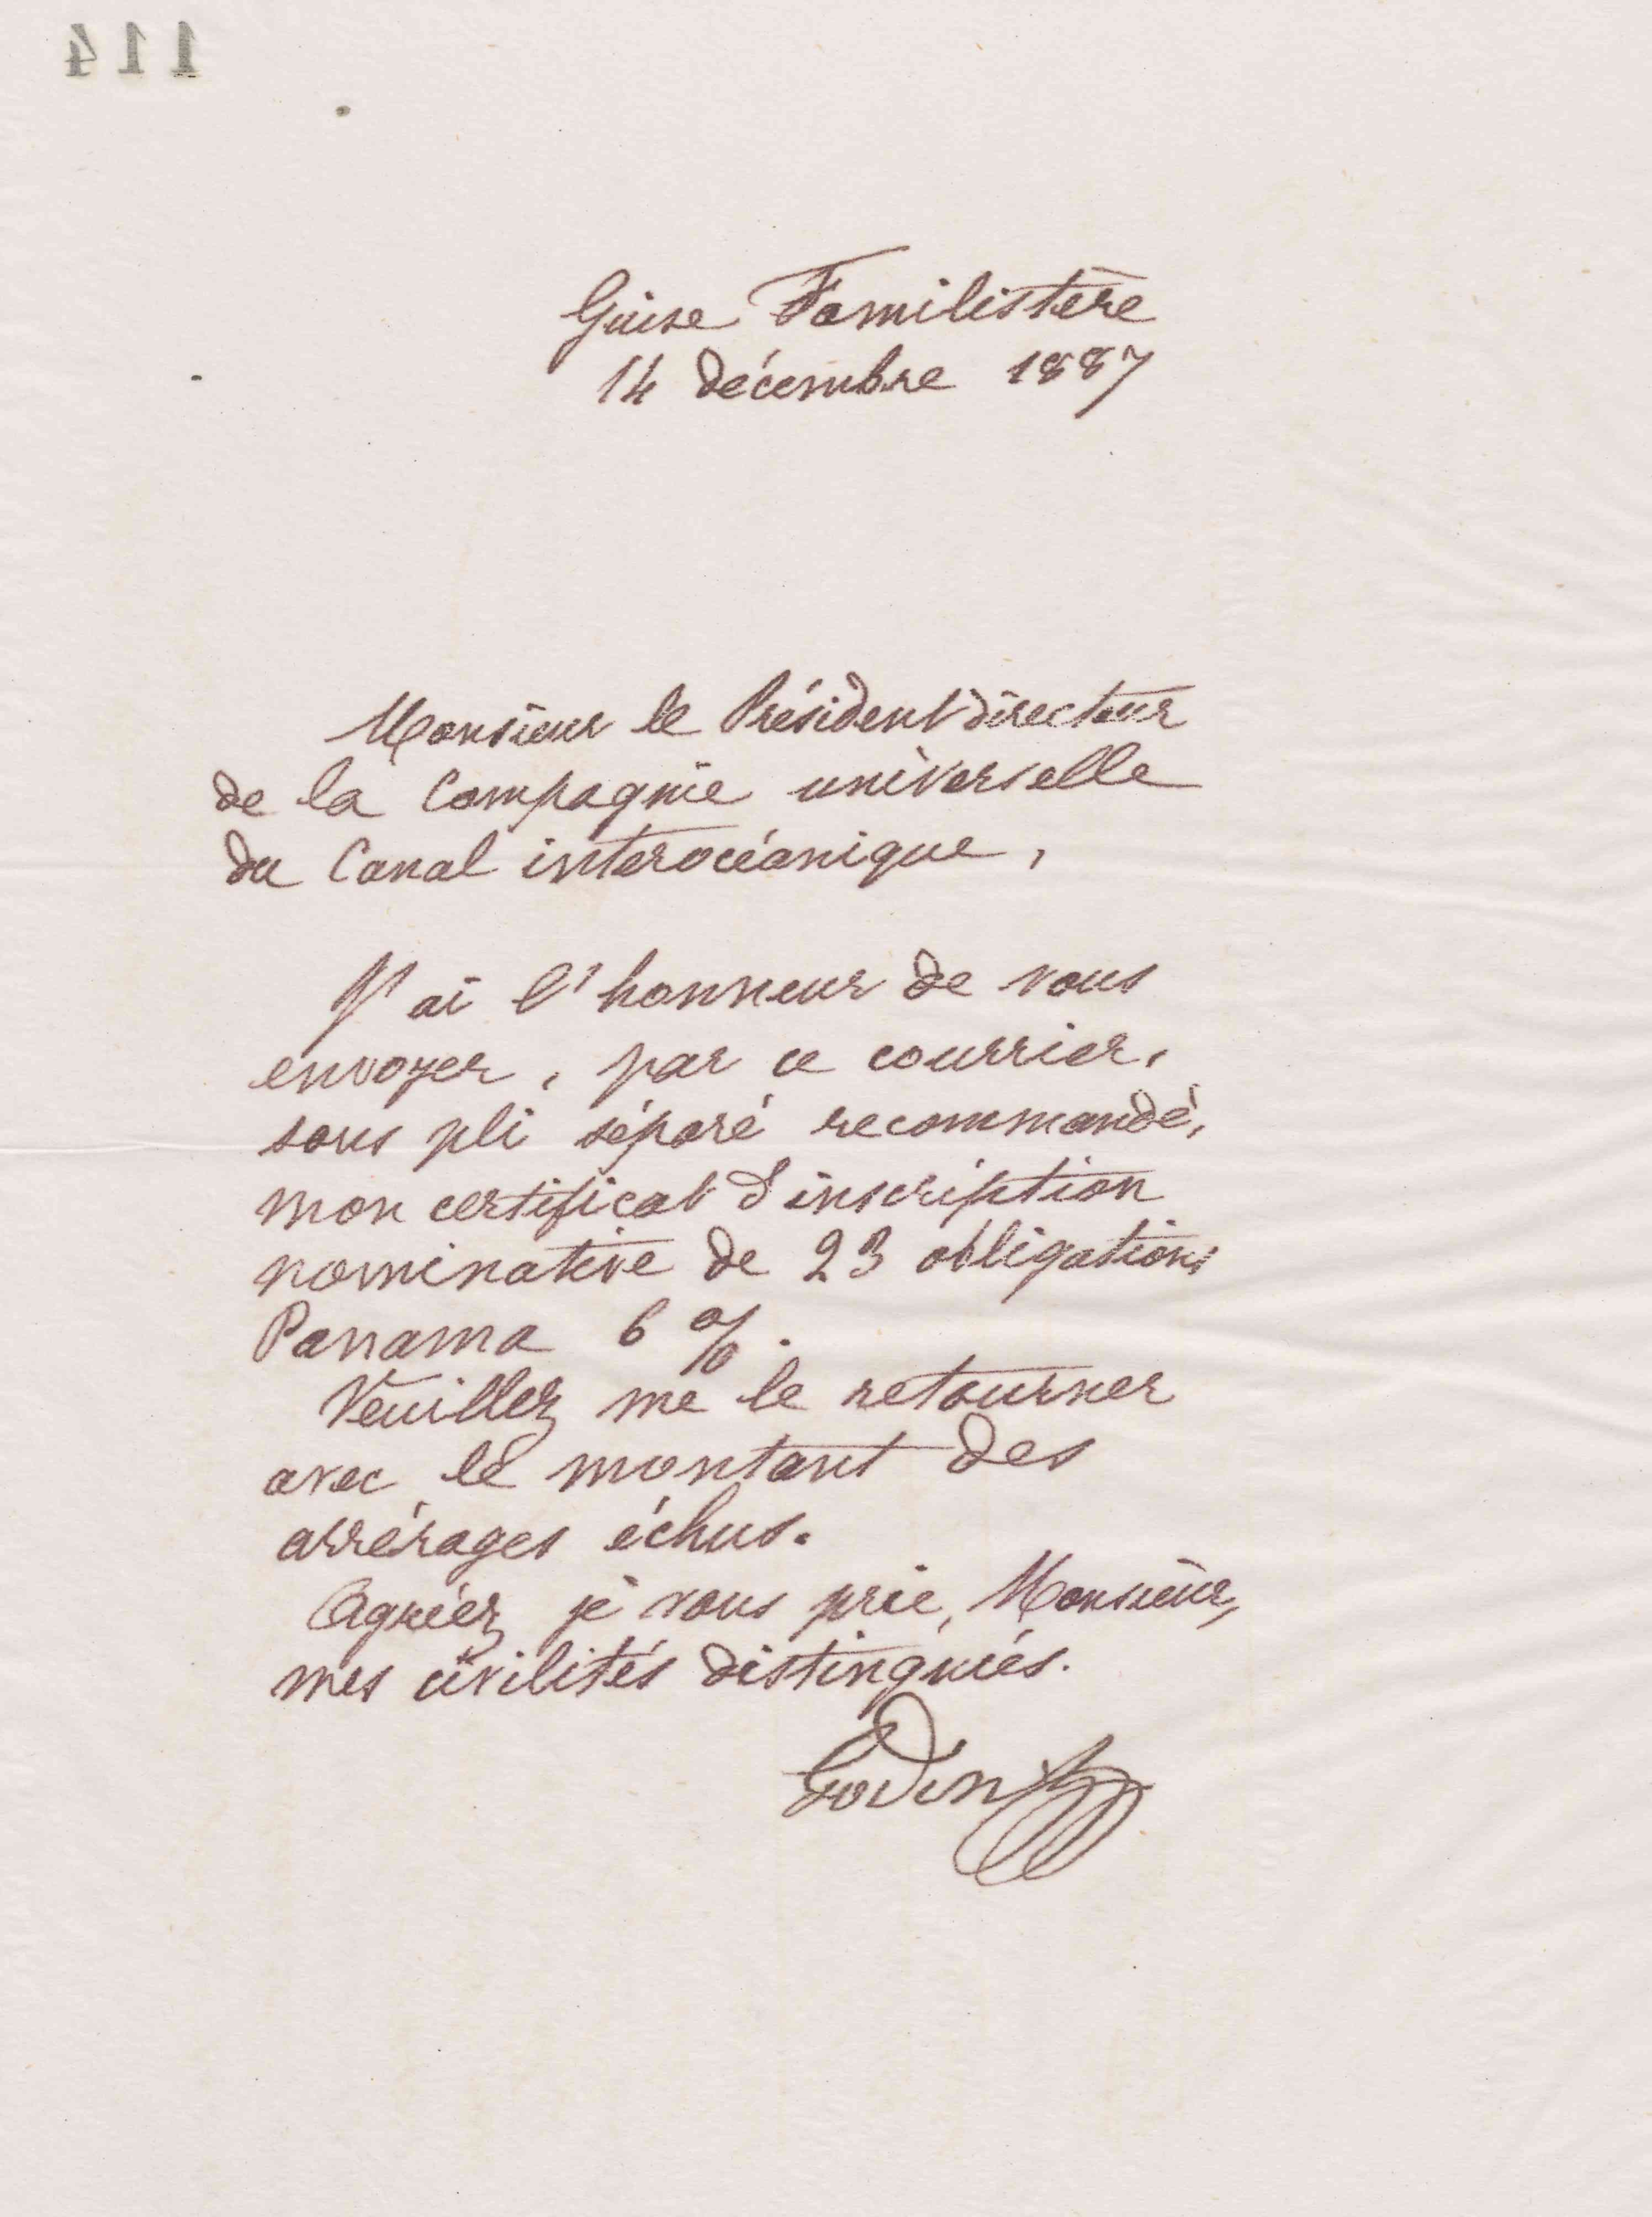 114
Guise Familistère
14 décembre 1887
Monsieur le Président directeur
de la Compagnie universelle
du Canal interocéanique,
J'ai l'honneur de vous
envoyer, par ce courrier,
sous pli séparé recommandé,
mon certificat d'inscription
nominative de 23 obligations
Panama 6 %.
Veuillez me le retourner
avec le montant des
arrérages échus.
Agréez, je vous prie, Monsieur,
mes civilités distinguées.
Godin